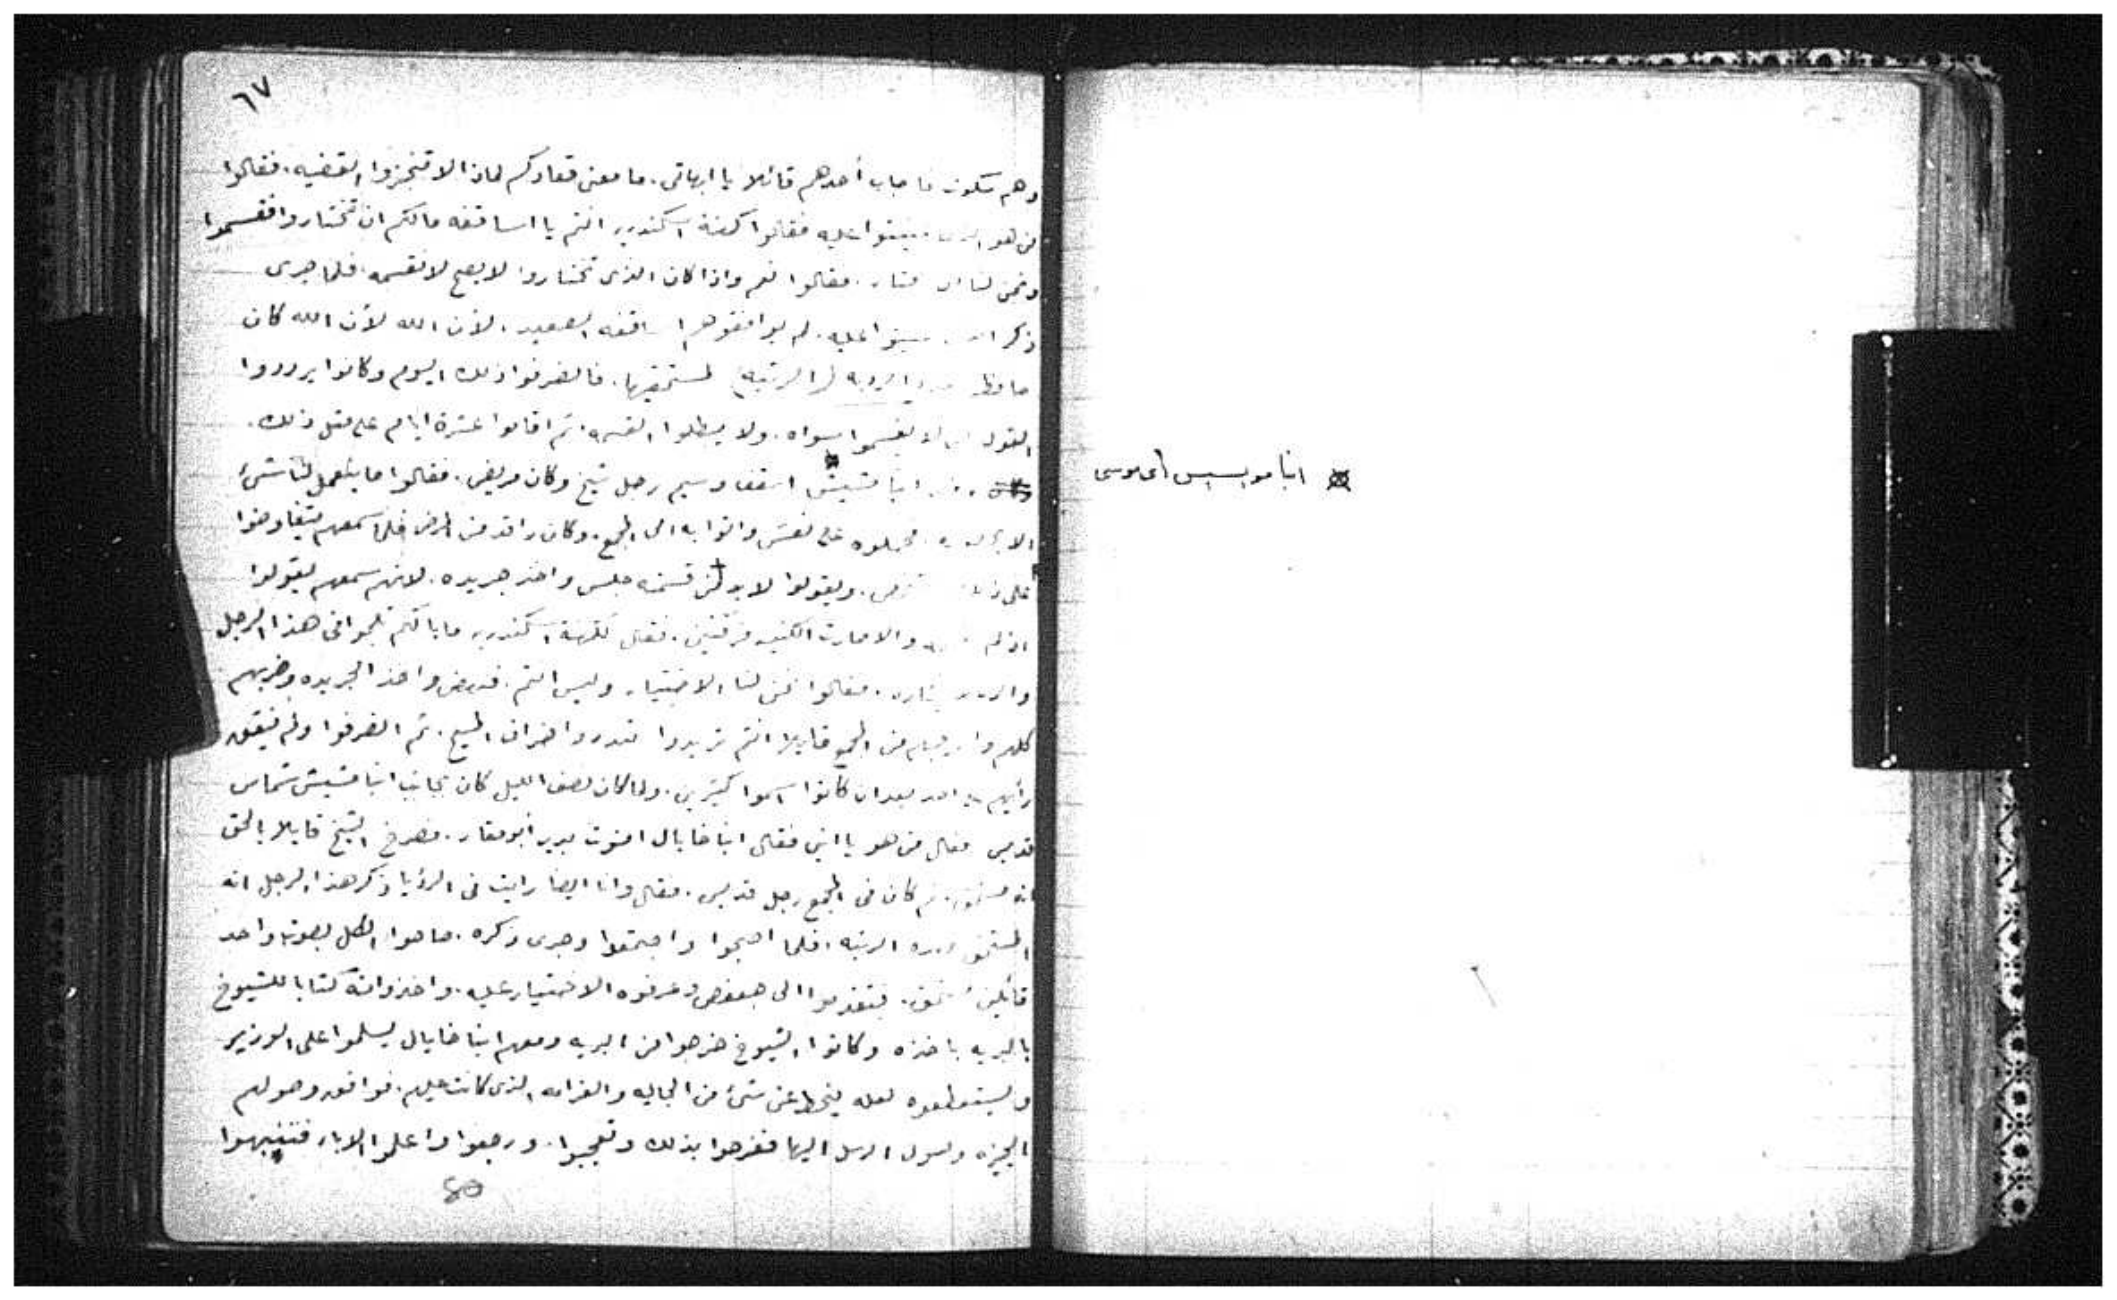 انبا مويسيس أى موسى
٦٧
وهم سكوت فاجاب أحدهم قائلا يا ابهاتى. ما معنى قعادكم لماذا لا تنجزوا القضيه. فقالوا
من هو فقالوا كهنة اسكندريه انتم يا اساقفه مالكم ان تختاروا اقسموا
ونحن لنا فقالوا نعم واذا كان الذى تختاروا لا يصح لا نقسمه. فلما جرى
ذكر عليه. لم يوافقوهم اساقفه الصعيد. لأن الله لأن الله كان
حافظ (الرتبه) لمستحقيها. فانصرفوا ذلك اليوم وكانوا يرددوا
القول يقسموا سواه. ولا يبطلوا القسمه. ثم اقاموا عشرة ايام على مثل ذلك.
انبا اسقف وسيم رجل شيخ وكان مريض. فقالوا ما ينعمل لنا شئ
الا فحملوه على نعش واتوا به الى المجمع. وكان راقد من المرض فلما سمعهم يتفاوضوا
على ويقولوا لابد من قسمته جلس واخذ جريده. لانه سمعهم يقولوا
ان لم والا صارت الكنيسه فرقتين. فقال لكهنة اسكندريه ما بالكم تلحوا فى هذا الرجل
فقالوا نحن لنا الاختيار وليس انتم. فنهض واخذ الجريده وضربهم
كلهم من المجمع قايلا انتم تريدوا تبددوا خراف المسيح. ثم انصرفوا ولم يتفق
رأيهم احد بعد ان كانوا اسموا كثيرين. ولما كان نصف الليل كان بجانب انبا شماس
قديس فقال من هو يا ابنى فقال انبا خايال امنوت بدير أبو مقار. فصرخ الشيخ قايلا بالحق
انه مستحق. ثم كان فى المجمع رجل قديس. فقال وانا ايضا رايت فى الرؤيا ذكر هذا الرجل انه
المستحق الرتبه. فلما اصبحوا واجتمعوا وجرى ذكره. صاحوا الكل بصوت واحد
قائلين مستحق. فتقدموا الى وعرفوه الاختيار عليه. واخذوا منه كتابا للشيوخ
بالبريه باخذه وكانوا الشيوخ خرجوا من البريه ومعهم انبا خايال ليسلموا على الوزير
ويستعطفوه لعله يحط عن شئ من الجاليه والغرامه الذى كانت عليهم. فوافق وصولهم
الجيزه وصول الرسل اليها ففرحوا بذلك وتعجبوا. ورجعوا واعلموا الابا.